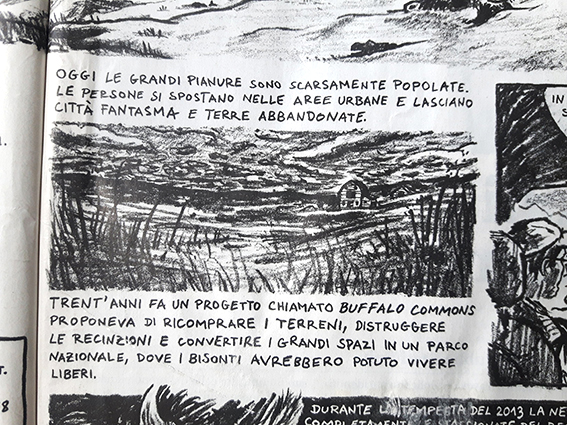 OGGI LE GRANDI PIANURE SONO SCARSAMENTE POPOLATE.
LE PERSONE SI SPOSTANO NELLE AREE URBANE E LASCIANO
CITTÀ FANTASMA E TERRE ABBANDONATE.
IN
S
TRENT'ANNI FA UN PROGETTO CHIAMATO BUFFALO COMMONS
PROPONEVA DI RICOMPRARE I TERRENI, DISTRUGGERE
LE RECINZIONI E CONVERTIRE I GRANDI SPAZI IN UN PARCO
NAZIONALE, DOVE I BISONTI AVREBBERO POTUTO VIVERE
LIBERI.
T.
8
DURANTE LA TEMPESTA DEL 2013 LA NE